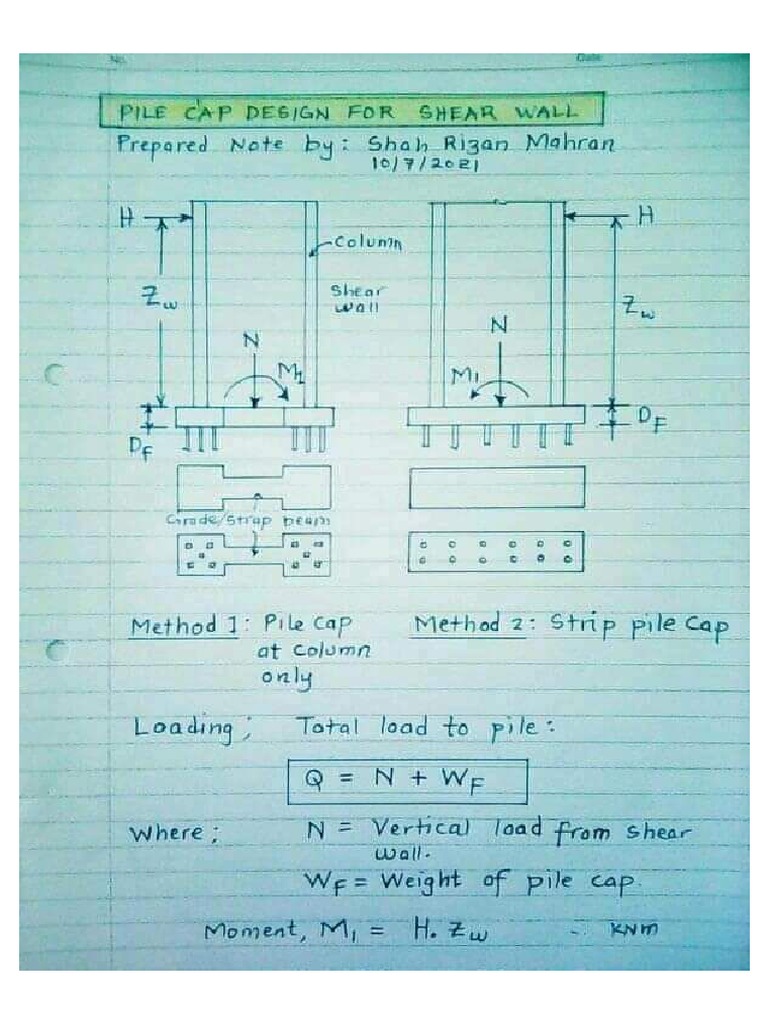 No.
Date
PILE CAP DESIGN FOR SHEAR WALL
Prepared Note by: Shah Rizan Mahran
10/7/2021
H
Column
H
Zw
Shear
wall
Zw
N
N
M1
M1
DF
DF
Grade/Strap beam
Method 1: Pile Cap
at Column
only
Method 2: Strip pile Cap
Loading; Total load to pile:
Q = N + WF
Where; N = Vertical load from shear
wall.
WF = Weight of pile cap.
Moment, M1 = H. Zw - KNm